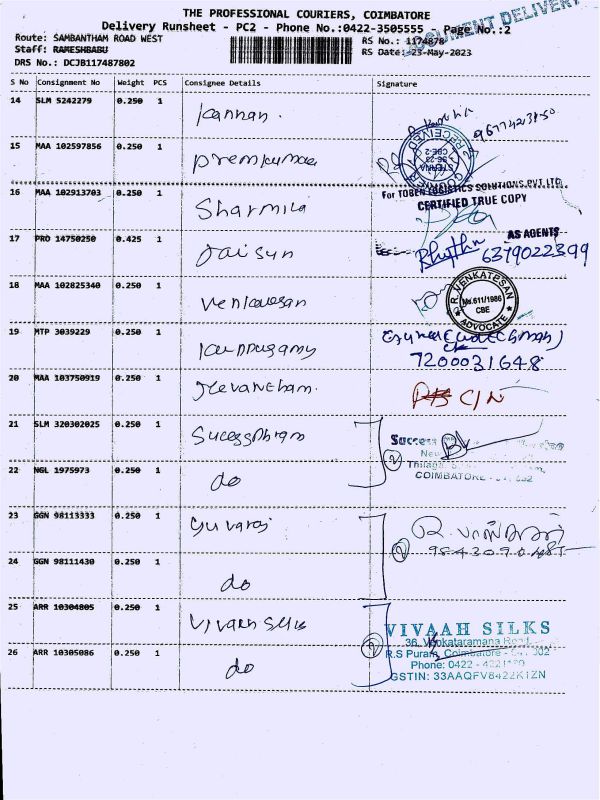 THE PROFESSIONAL COURIERS, COIMBATORE
Delivery Runsheet - PC2 - Phone No.:0422-3505555 - Page No.:2
DOCUMENT DELIVERY
Route: SAMBANTHAM ROAD WEST
RS No.: 1174878
Staff: RAMESHBABU
RS Date: 23-May-2023
DRS No.: DCJB117487802
S No Consignment No Weight PCS Consignee Details Signature
14 SLM 5242279 0.250 1 Kannan.
15 MAA 102597856 0.250 1 Premkumar
RECEIVED
CBE-2
16 MAA 102913703 0.250 1 Sharmila
For TOBEN LOGISTICS SOLUTIONS PVT LTD
CERTIFIED TRUE COPY
17 PRO 14750250 0.425 1 Jaisun
AS AGENTS
6379022399
18 MAA 102825340 0.250 1 Venkatesan
R. VENKATESAN
Ms.611/1986
CBE
ADVOCATE
19 MTP 3039229 0.250 1 Karuppusamy
7200031648
20 MAA 103750919 0.250 1
C/N
21 SLM 320302025 0.250 1
Success
COIMBATORE
22 NGL 1975973 0.250 1 do
2
23 GGN 98113333 0.250 1 Yuvaraj
24 GGN 98111430 0.250 1 do
2
25 ARR 10304805 0.250 1 Vivaah Silks
VIVAAH SILKS
36, Venkataramana Road,
26 ARR 10305086 0.250 1 do
2
R.S Puram, Coimbatore
Phone: 0422
GSTIN: 33AAQFV8422K1ZN